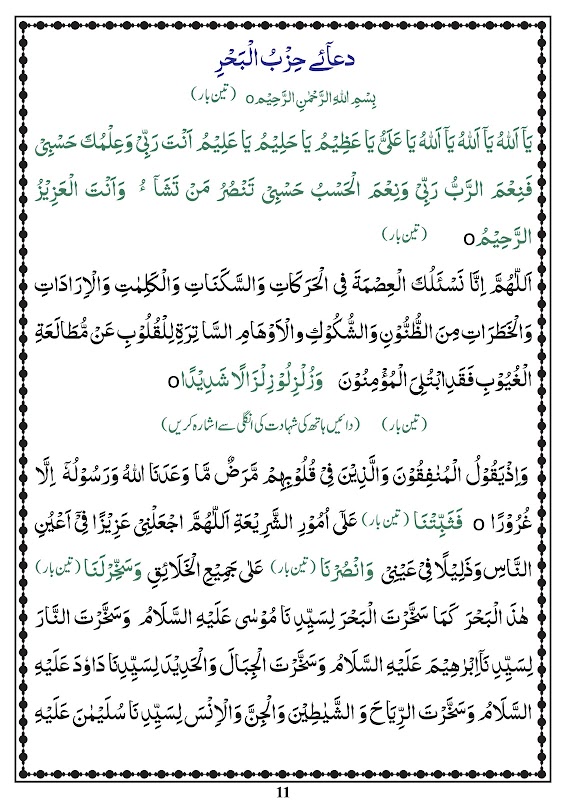 دعآئے حِزْبُ الْبَحْرِ
بِسْمِ اللهِ الرَّحْمٰنِ الرَّحِيْمِ o (تین بار)
يَآ اَللهُ يَآ اَللهُ يَآ اَللهُ يَا عَلِيُّ يَا عَظِيْمُ يَا حَلِيْمُ يَا عَلِيْمُ اَنْتَ رَبِّيْ وَعِلْمُكَ حَسْبِيْ
فَنِعْمَ الرَّبُّ رَبِّيْ وَنِعْمَ الْحَسْبُ حَسْبِيْ تَنْصُرُ مَنْ تَشَآءُ وَاَنْتَ الْعَزِيْزُ
الرَّحِيْمُ o (تین بار)
اَللّٰهُمَّ اِنَّا نَسْئَلُكَ الْعِصْمَةَ فِي الْحَرَكَاتِ وَالسَّكَنَاتِ وَالْكَلِمٰتِ وَالْاِرَادَاتِ
وَالْخَطَرَاتِ مِنَ الظُّنُوْنِ وَالشُّكُوْكِ وَالْاَوْهَامِ السَّاتِرَةِ لِلْقُلُوْبِ عَنْ مُّطَالَعَةِ
الْغُيُوْبِ فَقَدِ ابْتُلِيَ الْمُؤْمِنُوْنَ وَزُلْزِلُوْا زِلْزَالًا شَدِيْدًا o
(تین بار) (دائیں ہاتھ کی شہادت کی انگلی سے اشارہ کریں)
وَاِذْ يَقُوْلُ الْمُنٰفِقُوْنَ وَالَّذِيْنَ فِيْ قُلُوْبِهِمْ مَّرَضٌ مَّا وَعَدَنَا اللهُ وَرَسُوْلُهٗ اِلَّا
غُرُوْرًا o فَثَبِّتْنَا (تین بار) عَلٰى اُمُوْرِ الشَّرِيْعَةِ اَللّٰهُمَّ اجْعَلْنِيْ عَزِيْزًا فِيْ اَعْيُنِ
النَّاسِ وَذَلِيْلًا فِيْ عَيْنِيْ وَانْصُرْنَا (تین بار) عَلٰى جَمِيْعِ الْخَلَائِقِ وَسَخِّرْلَنَا (تین بار)
هٰذَ الْبَحْرَ كَمَا سَخَّرْتَ الْبَحْرَ لِسَيِّدِنَا مُوْسٰى عَلَيْهِ السَّلَامُ وَسَخَّرْتَ النَّارَ
لِسَيِّدِنَآ اِبْرٰهِيْمَ عَلَيْهِ السَّلَامُ وَسَخَّرْتَ الْجِبَالَ وَالْحَدِيْدَ لِسَيِّدِنَا دَاوٗدَ عَلَيْهِ
السَّلَامُ وَسَخَّرْتَ الرِّيَاحَ وَالشَّيٰطِيْنَ وَالْجِنَّ وَالْاِنْسَ لِسَيِّدِنَا سُلَيْمٰنَ عَلَيْهِ
11